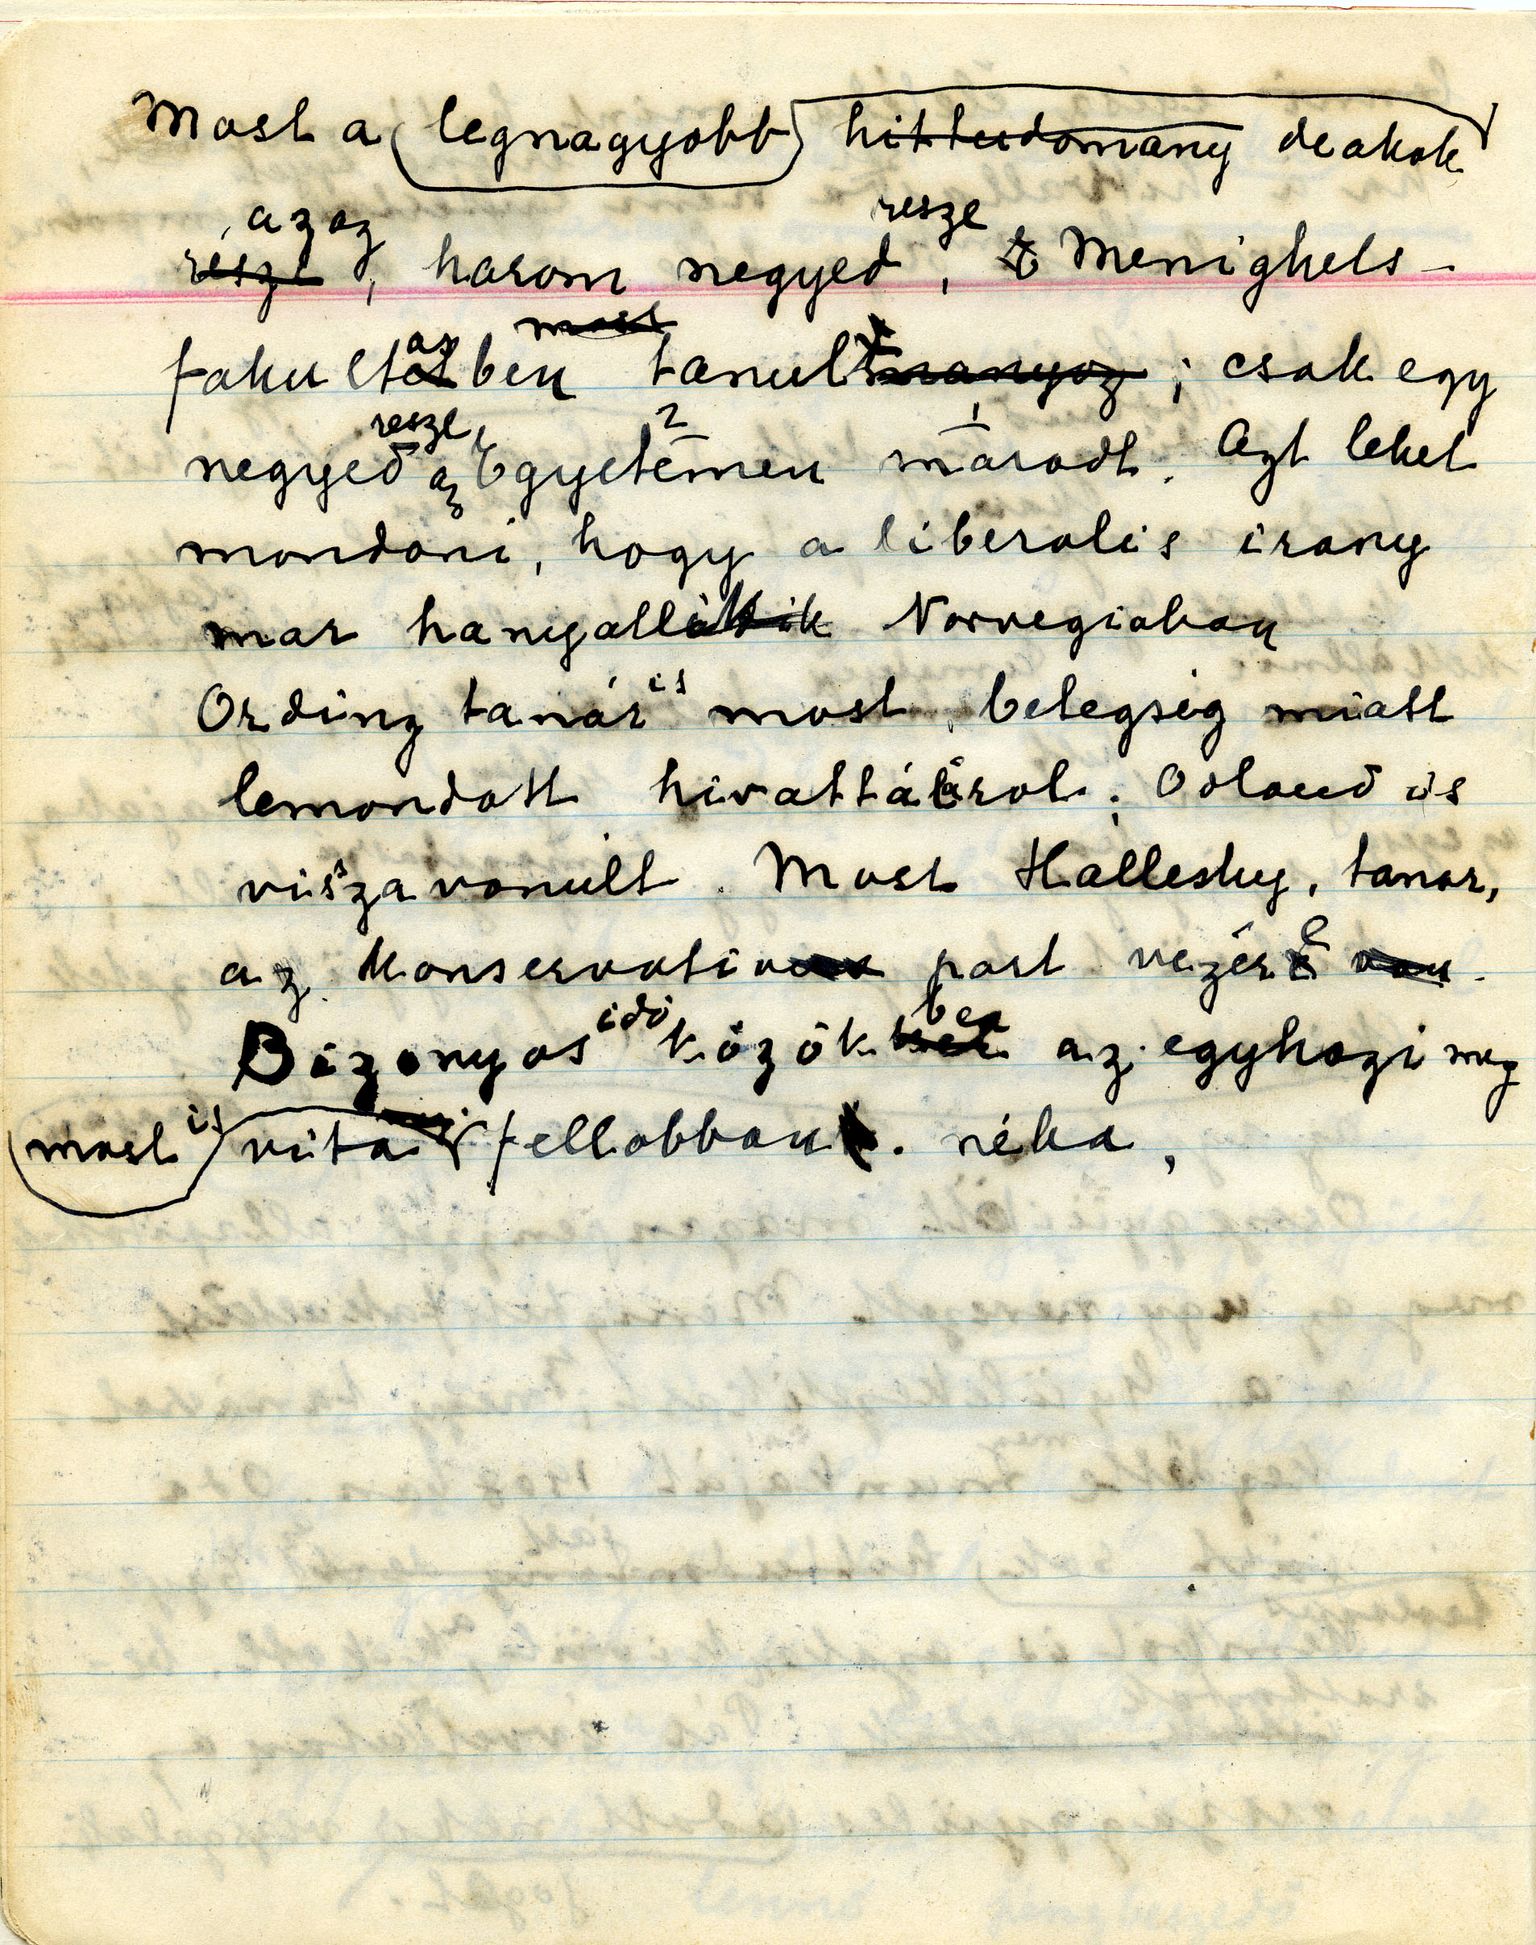 Most a legnagyobb hittudomany deakok
azaz resze
resze, harom negyed, a Menighets-
most
fakultasben tanul; csak egy
resze 2 1
negyed az Egyetemen maradt. Azt lehet
mondani, hogy a liberalis irany
mar hanyatlik Norvegiaban
Ording tanár is most, betegség miatt
lemondott hivattáról; Odland is
viszavonult. Most Hallesby, tanar,
az konservativ part vezére van.
idő ben
Bizonyos közökben az egyhazi meg
most is vita fellobban. néha,